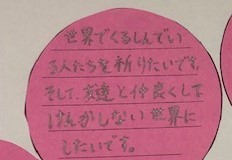 世界でくるしんでい
る人たちを祈りたいです。
そして、友達と仲良くして
けんかしない世界に
したいです。